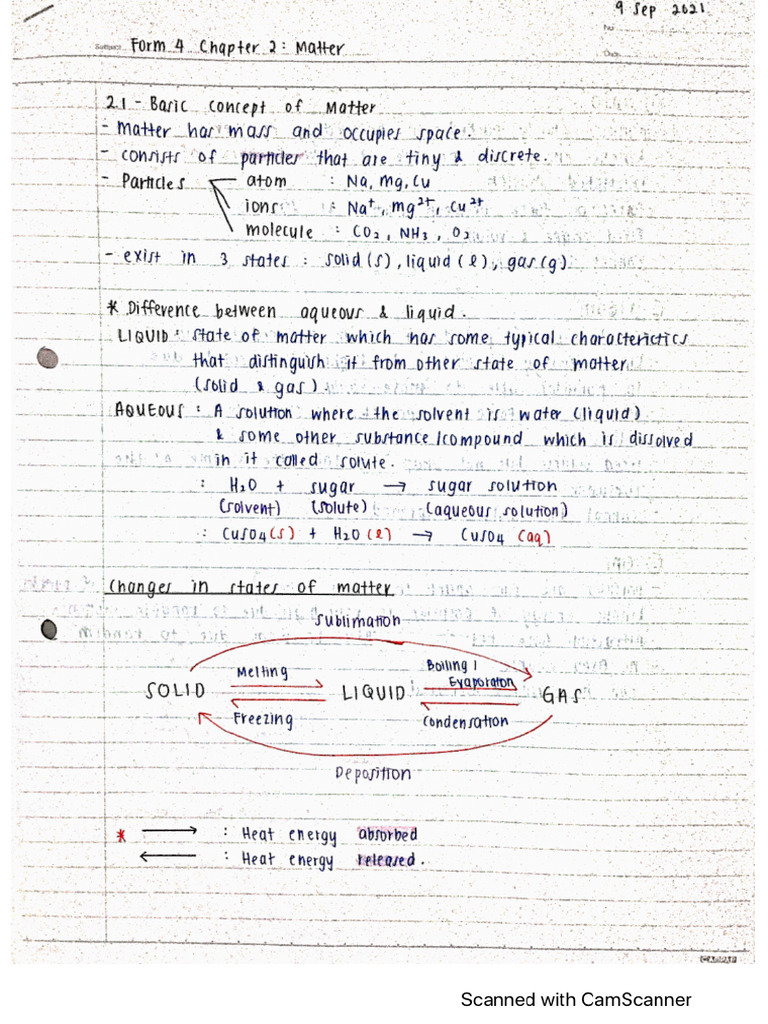 9 Sep 2021
No
Date
Subject Form 4 Chapter 2: Matter
2.1 - Basic concept of Matter
- Matter has mass and occupies space.
- consists of particles that are tiny & discrete.
- Particles atom : Na, Mg, Cu
ions : Na⁺, Mg²⁺, Cu²⁺
molecule : CO₂, NH₃, O₂
- exist in 3 states : solid (s), liquid (l), gas (g)
* Difference between aqueous & liquid.
LIQUID : state of matter which has some typical characterictics
that distinguish it from other state of matter
(solid & gas)
AQUEOUS : A solution where the solvent is water (liquid)
& some other substance/compound which is dissolved
in it called solute.
: H₂O + sugar → sugar solution
(solvent) (solute) (aqueous solution)
: CuSO₄ (s) + H₂O (l) → CuSO₄ (aq)
Changes in states of matter
Sublimation
Melting Boiling / Evaporaton
SOLID LIQUID GAS
Freezing Condensation
Deposition
* → : Heat energy absorbed
← : Heat energy released.
CAMPAP
Scanned with CamScanner